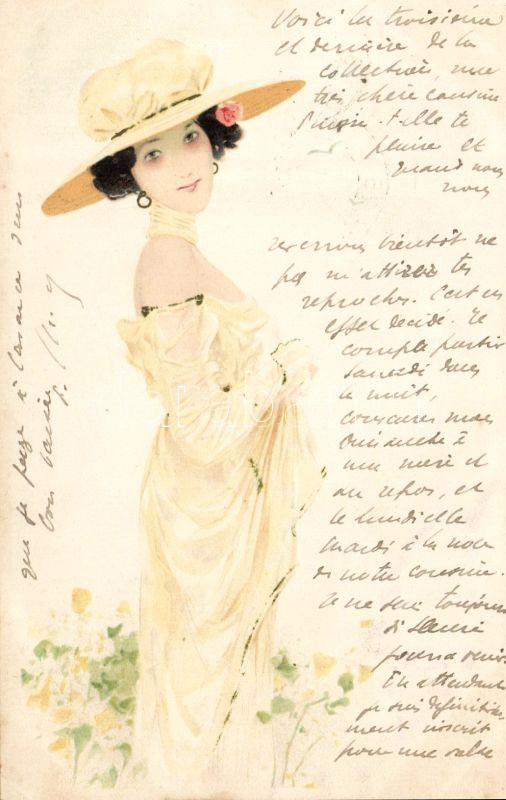 Voici la troisième
et dernière de la
collection, ma
très chère cousine
Puisse-t-elle te
plaire et
quand nous
nous
reverrons bientôt ne
pas m'attirer tes
reproches. C'est en
effet décidé. Je
compte partir
samedi dans
la nuit,
consacrer mon
Dimanche à
ma mère et
au repos, et
le lundi elle
mardi à la noce
de notre cousine.
Je ne sais toujours
si
pourra venir
En attendant
je suis définitive-
ment inscrit
pour une valse
que je paye à l'avance d'un
bon baiser